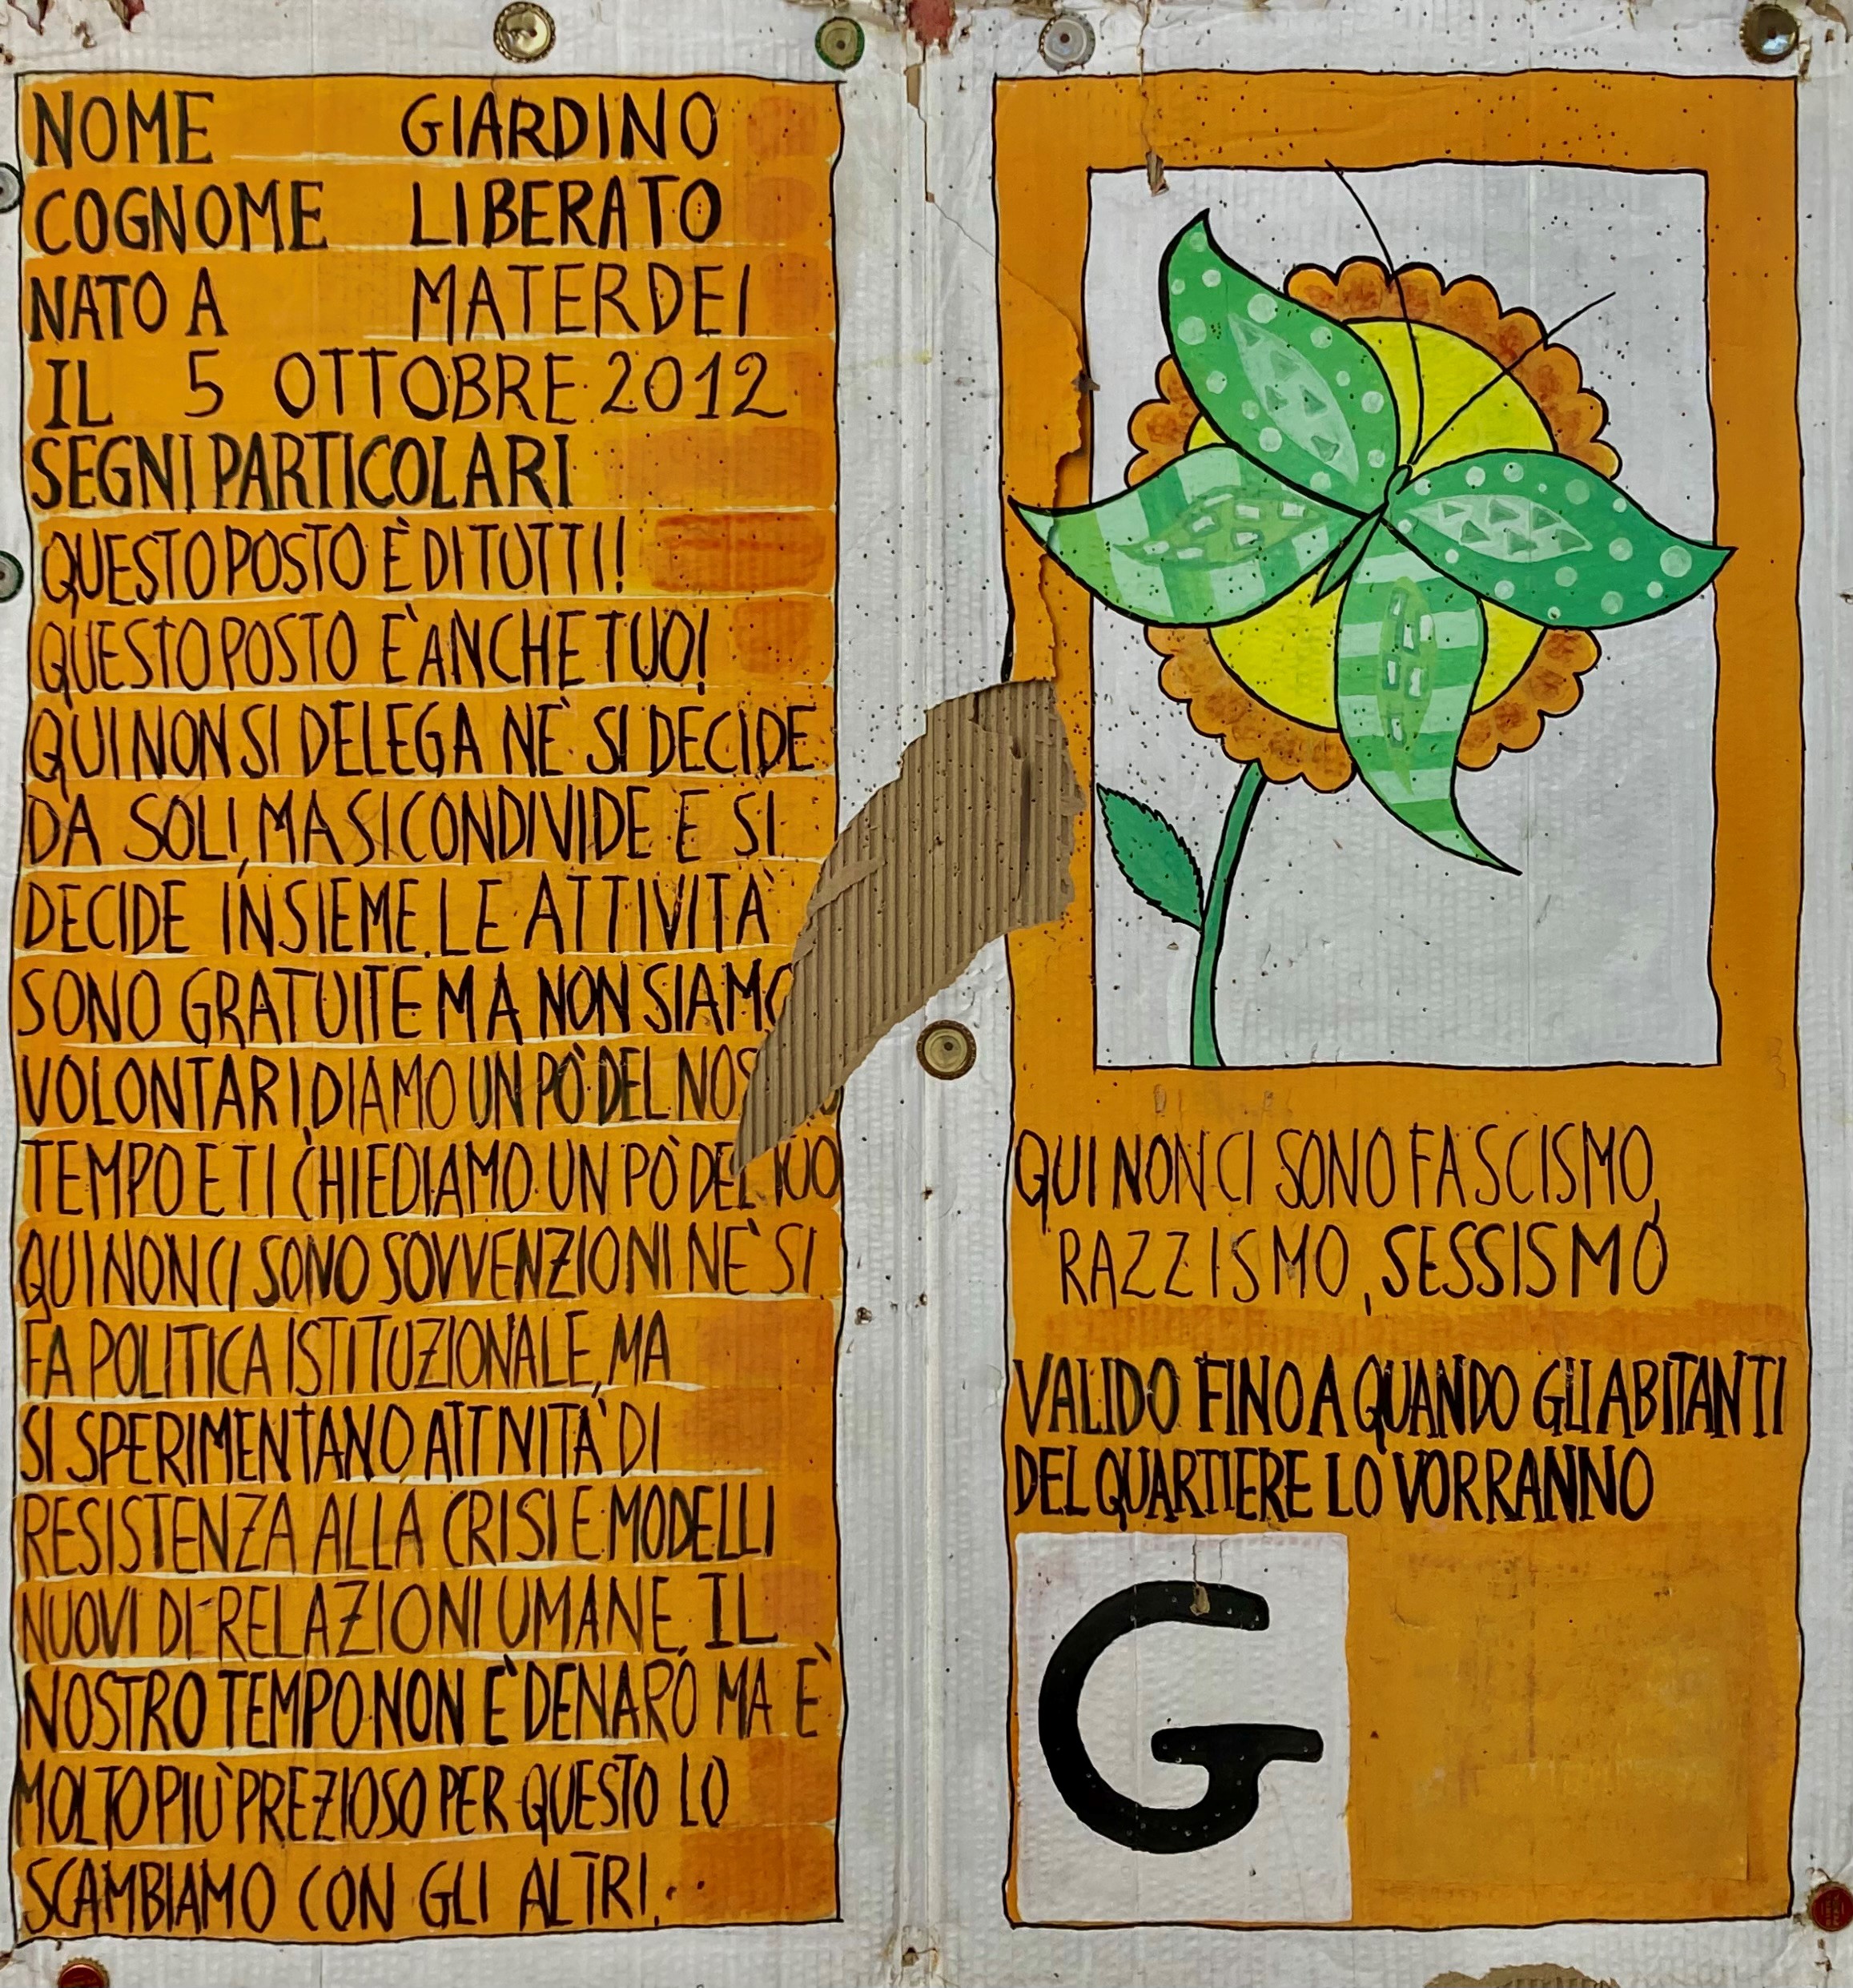 NOME GIARDINO
COGNOME LIBERATO
NATO A MATERDEI
IL 5 OTTOBRE 2012
SEGNI PARTICOLARI
QUESTO POSTO È DI TUTTI!
QUESTO POSTO E' ANCHE TUO!
QUI NON SI DELEGA NE' SI DECIDE
DA SOLI, MA SI CONDIVIDE E SI
DECIDE INSIEME. LE ATTIVITA'
SONO GRATUITE MA NON SIAMO
VOLONTARI DIAMO UN PO' DEL
TEMPO E TI CHIEDIAMO UN PO' DEL TUO
QUI NON CI SONO SOVVENZIONI NE' SI
FA POLITICA ISTITUZIONALE, MA
SI SPERIMENTANO ATTIVITA' DI
RESISTENZA ALLA CRISI E MODELLI
NUOVI DI RELAZIONI UMANE. IL
NOSTRO TEMPO NON E' DENARO MA E'
MOLTO PIU' PREZIOSO PER QUESTO LO
SCAMBIAMO CON GLI ALTRI...
QUI NON CI SONO FASCISMO,
RAZZISMO, SESSISMO
VALIDO FINO A QUANDO GLI ABITANTI
DEL QUARTIERE LO VORRANNO
G